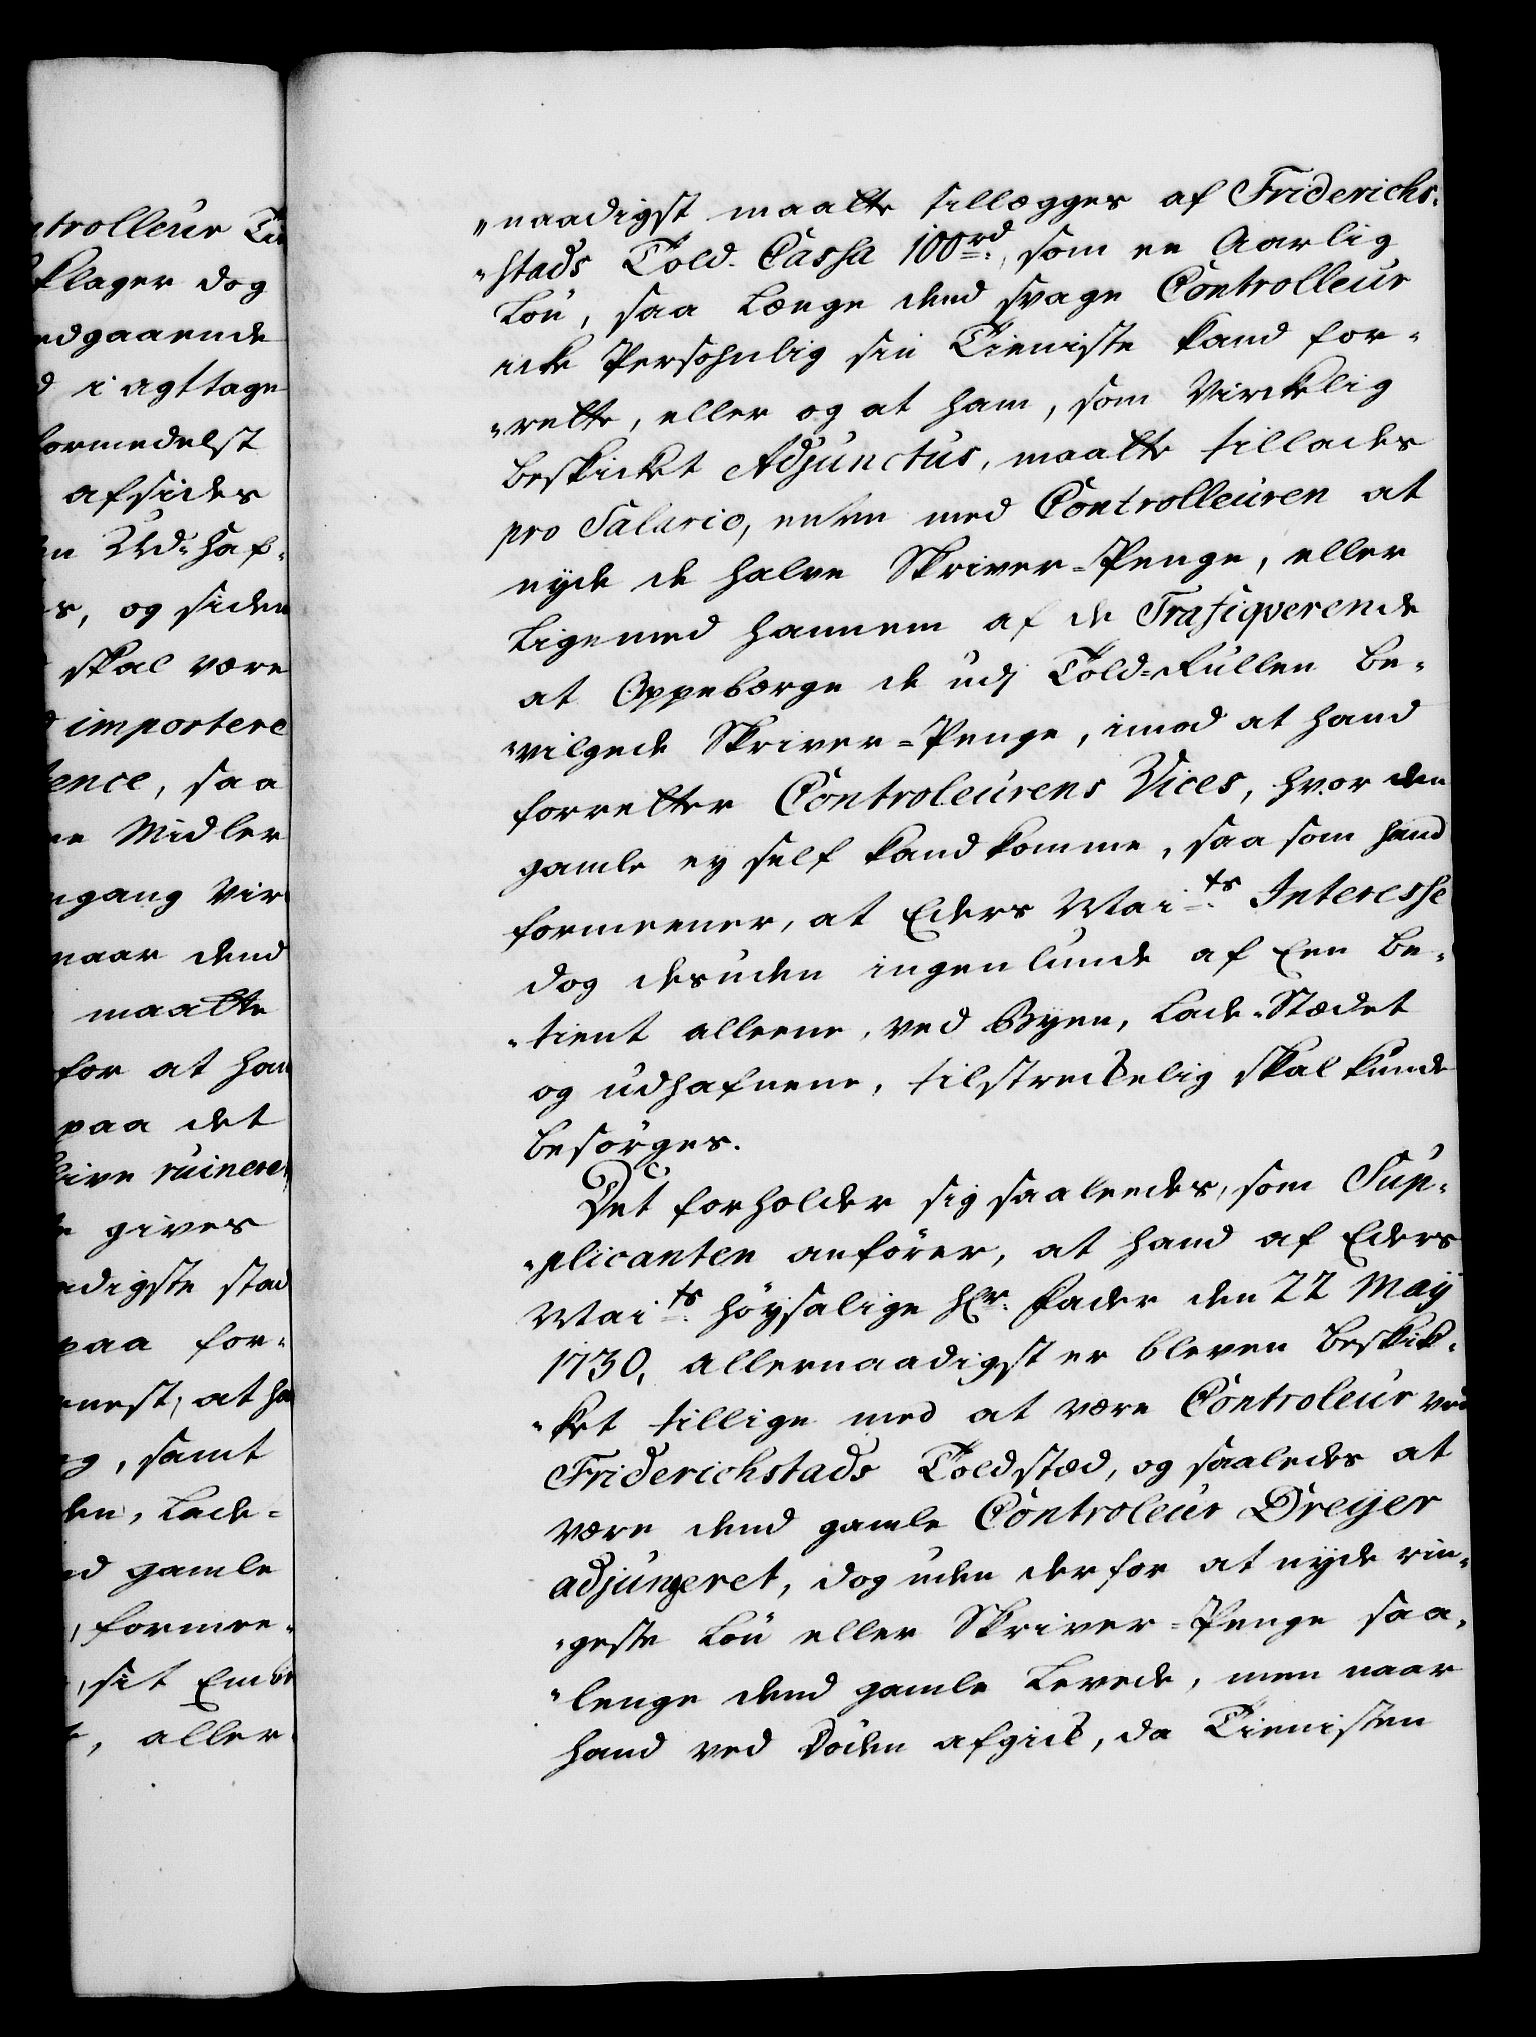 ntrolleur Tie
klager dog
edgaaende
d i agttage
formedelst
afsides
en Ud-Haf-
s, og siden
skal være
d importere
tence, saa
ne Midler
ngang Vir
naar dend
maatte
for at han
paa det
blive ruineret
gives
adigste stad
paa for-
nest, at ha
og, samt
den, Lade-
nd gamle
, formee-
, sit Embe
t, aller-
"naadigst maatte tillægges af Friderichs-
"stads Told-Cassa 100rd., som en Aarlig
Lön, saa Længe dend svage Controlleur
icke Persohnlig sin Tieniste kand for-
"rette, eller og at ham, som Virckelig
beskicket Adjunctus, maatte tillades
pro Salario, enten med Controlleuren at
nyde de halve Skriver-Penge, eller
Ligemed hannem af de Trafiqverende
at Oppebærge de udj Told-Rullen be-
"vilgede Skriver-Penge, imod at hand
forretter Controleurens Vices, hvor den
gamle ey self kand komme, saa som hand
formeener, at Eders Maits. Interesse
dog desuden ingenlunde af Een be-
"tient alleene, ved Byen, Lade-Stædet
og udhafnene, tilstreckelig skal kunde
besörges.
Det forholder sig saaleedes, som Sup-
"plicanten anförer, at hand af Eders
Maits. höysalige Hr. Fader den 22 Maij
1730, allernaadigst er bleven beskik-
"ket tillige med at være Controleur ved
Friderichstads Toldstæd, og saaledes at
være dend gamle Controleur Dreyer
adjungeret, dog uden derfor at nyde rin-
"geste Lön eller Skriver-Penge saa-
"lenge dend gamle Levede, men naar
hand ved Döden afgick, da Tienisten